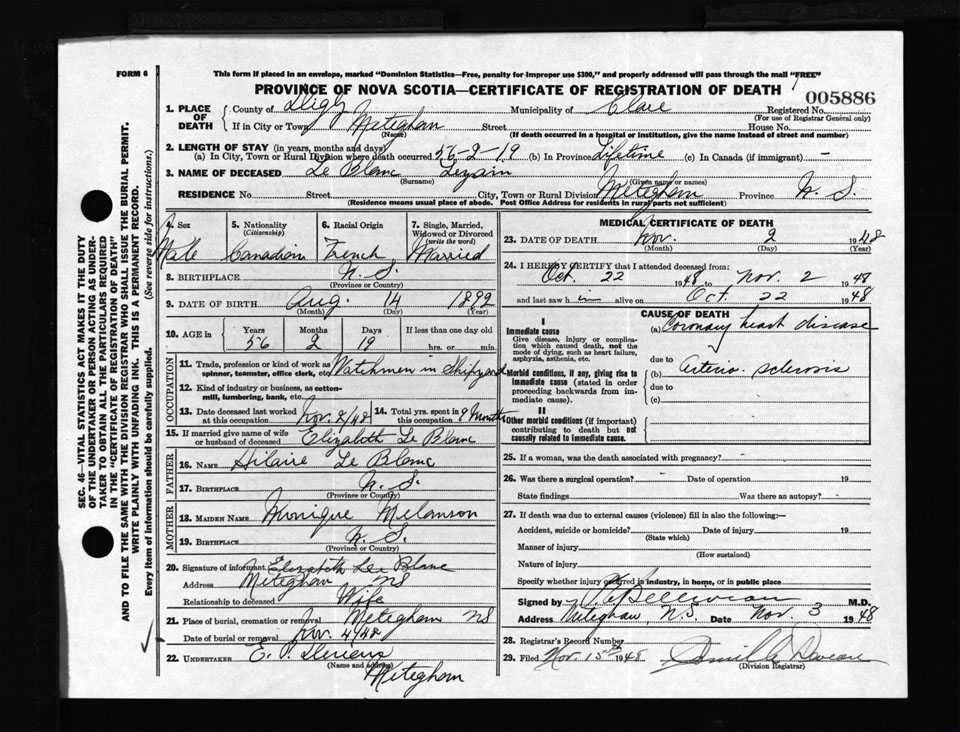 FORM 6
This form if placed in an envelope, marked "Dominion Statistics—Free, penalty for improper use $300," and properly addressed will pass through the mail "FREE"
PROVINCE OF NOVA SCOTIA—CERTIFICATE OF REGISTRATION OF DEATH
005886
1. PLACE OF DEATH
County of Digby Municipality of Clare Registered No.
(For use of Registrar General only)
If in City or Town Meteghan Street House No.
(Name) (If death occurred in a hospital or institution, give the name instead of street and number)
2. LENGTH OF STAY (in years, months and days)
(a) In City, Town or Rural Division where death occurred 56-2-19 (b) In Province Lifetime (c) In Canada (if immigrant) —
3. NAME OF DECEASED Le Blanc Lezain
(Surname) (Given name or names)
RESIDENCE No. Street City, Town or Rural Division Meteghan Province N. S.
(Residence means usual place of abode. Post Office Address for residents in rural parts not sufficient)
4. Sex
Male
5. Nationality
(Citizenship)
Canadian
6. Racial Origin
French
7. Single, Married, Widowed or Divorced
(write the word)
Married
8. BIRTHPLACE N. S.
(Province or Country)
9. DATE OF BIRTH Aug. 14 1892
(Month) (Day) (Year)
10. AGE in Years Months Days If less than one day old
56 2 19 hrs. or min.
OCCUPATION
11. Trade, profession or kind of work as spinner, teamster, office clerk, etc. Watchmen in Shipyard
12. Kind of industry or business, as cotton-mill, lumbering, bank, etc.
13. Date deceased last worked at this occupation Nov. 2/48
14. Total yrs. spent in 9 Months
15. If married give name of wife or husband of deceased Elizabeth Le Blanc
FATHER
16. NAME Hilaire Le Blanc
17. BIRTHPLACE N. S.
(Province or Country)
MOTHER
18. MAIDEN NAME Monique Melanson
19. BIRTHPLACE N. S.
(Province or Country)
20. Signature of informant Elizabeth Le Blanc
Address Meteghan NS
Relationship to deceased Wife
21. Place of burial, cremation or removal Meteghan NS
Date of burial or removal Nov. 4/48
22. UNDERTAKER E. P.
(Name and address)
Meteghan
MEDICAL CERTIFICATE OF DEATH
23. DATE OF DEATH Nov. 2 1948
(Month) (Day) (Year)
24. I HEREBY CERTIFY that I attended deceased from:
Oct. 22 1948 to Nov. 2 1948
and last saw h im alive on Oct. 22 1948
CAUSE OF DEATH
I
Immediate cause
Give disease, injury or complication which caused death, not the mode of dying, such as heart failure, asphyxia, asthenia, etc.
(a) Coronary heart disease
due to
Morbid conditions, if any, giving rise to immediate cause (stated in order proceeding backwards from immediate cause).
(b) Arterio-sclerosis
due to
(c)
II
Other morbid conditions (if important) contributing to death but not causally related to immediate cause.
25. If a woman, was the death associated with pregnancy?
26. Was there a surgical operation? Date of operation 19
State findings Was there an autopsy?
27. If death was due to external causes (violence) fill in also the following:—
Accident, suicide or homicide? Date of injury 19
(State which)
Manner of injury
(How sustained)
Nature of injury
Specify whether injury occurred in industry, in home, or in public place
Signed by M.D.
Address Meteghan, N.S. Date Nov. 3 1948
28. Registrar's Record Number
29. Filed Nov. 15th 1948
(Division Registrar)
SEC. 46—VITAL STATISTICS ACT MAKES IT THE DUTY
OF THE UNDERTAKER OR PERSON ACTING AS UNDER-
TAKER TO OBTAIN ALL THE PARTICULARS REQUIRED
IN THE "CERTIFICATE OF REGISTRATION OF DEATH"
AND TO FILE THE SAME WITH THE DIVISION REGISTRAR WHO SHALL ISSUE THE BURIAL PERMIT.
WRITE PLAINLY WITH UNFADING INK. THIS IS A PERMANENT RECORD.
Every item of information should be carefully supplied. (See reverse side for instructions.)